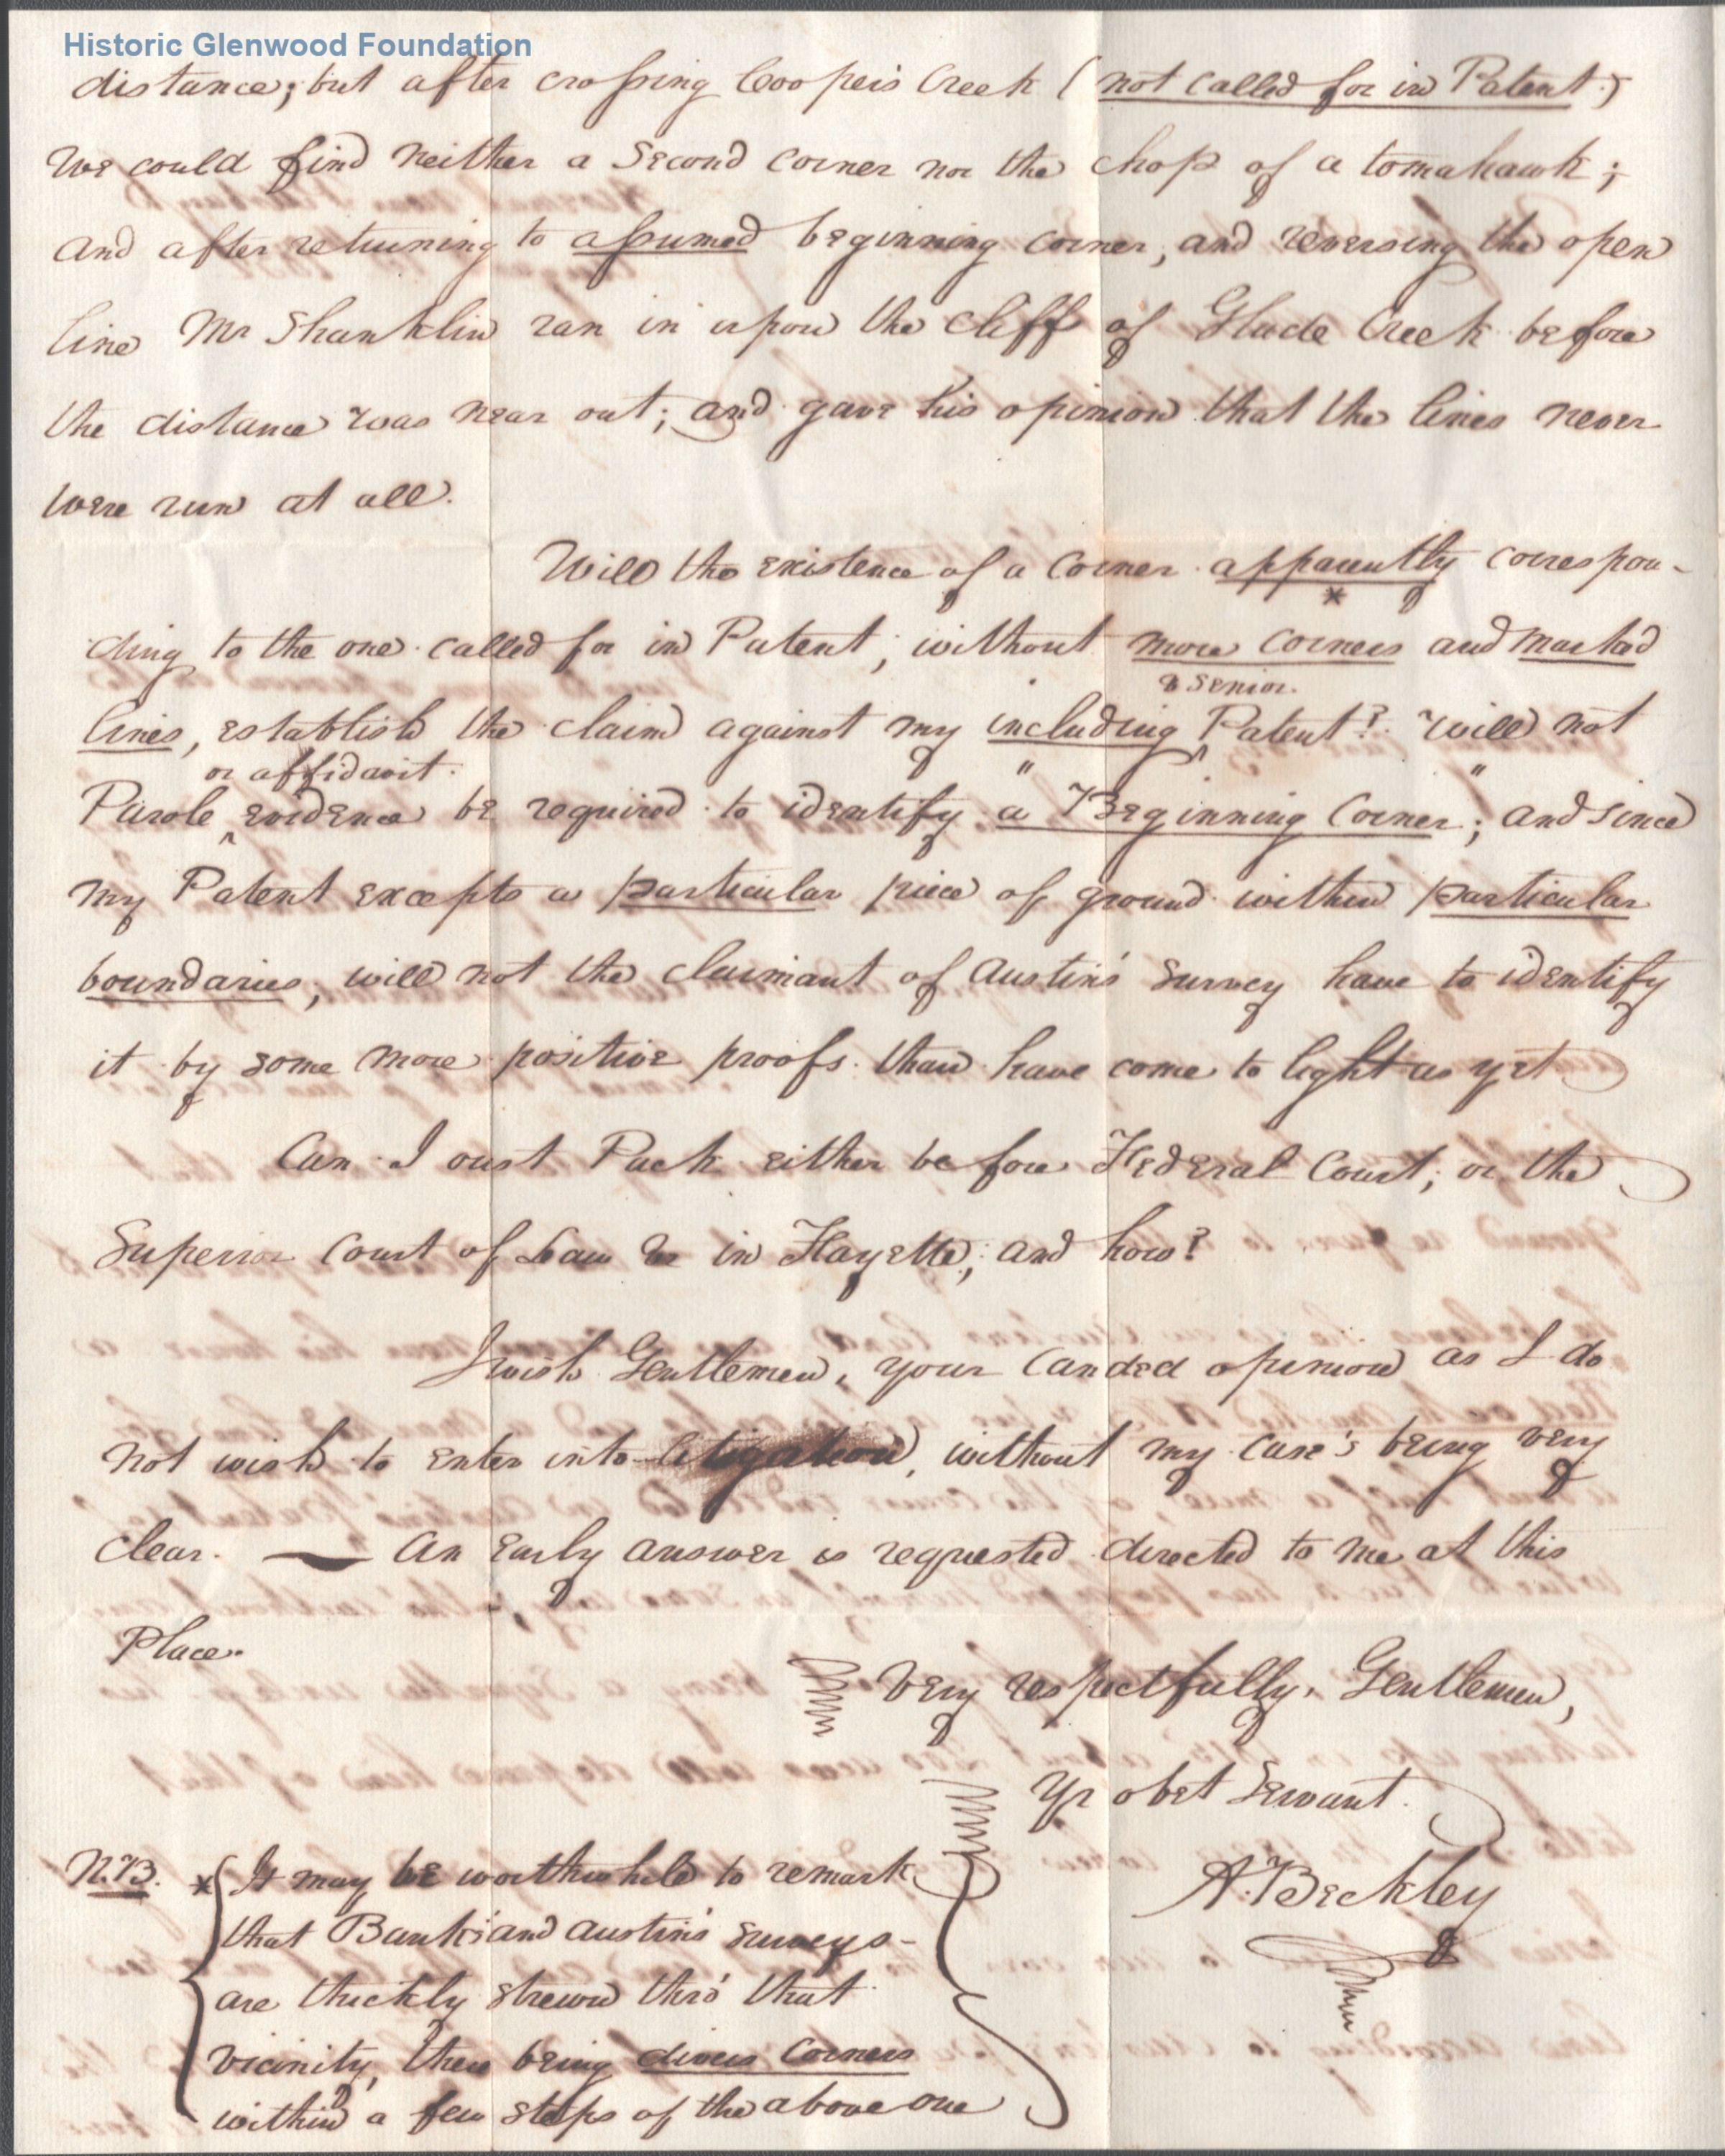 Historic Glenwood Foundation
distance; but after crossing Cooper's Creek (not called for in Patent.)
We could find neither a Second corner nor the chop of a tomahawk;
and after returning to assumed beginning corner, and reversing the open
line Mr Shanklin ran in upon the cliff of Glade Creek before
the distance was near out; and gave his opinion that the lines never
were run at all.
Will the existence of a Corner apparently correspon-
*
ding to the one called for in Patent, without more corners and marked
& Senior.
lines, establish the claim against my including ^ Patent? Will not
or affidavit.
Parole ^ evidence be required to identify "a Beginning Corner"; and since
my Patent excepts a particular piece of ground within particular
boundaries, will not the claimant of Austin's Survey have to identify
it by some more positive proofs than have come to light as yet
Can I oust Pack either before Federal Court; or the
Superior Court of Law &c in Fayette; and how?
I wish Gentlemen, your canded opinion as I do
not wish to enter into litigation, without my case's being very
clear. — An Early answer is requested directed to me at this
Place.
Very respectfully, Gentlemen,
Yr obet Servant.
A. Beckley
N.B. * It may be worthwhile to remark
that Banks' and Austin's Surveys-
are thickly strewn thro' that
vicinity, there being divers Corners
within a few steps of the above one